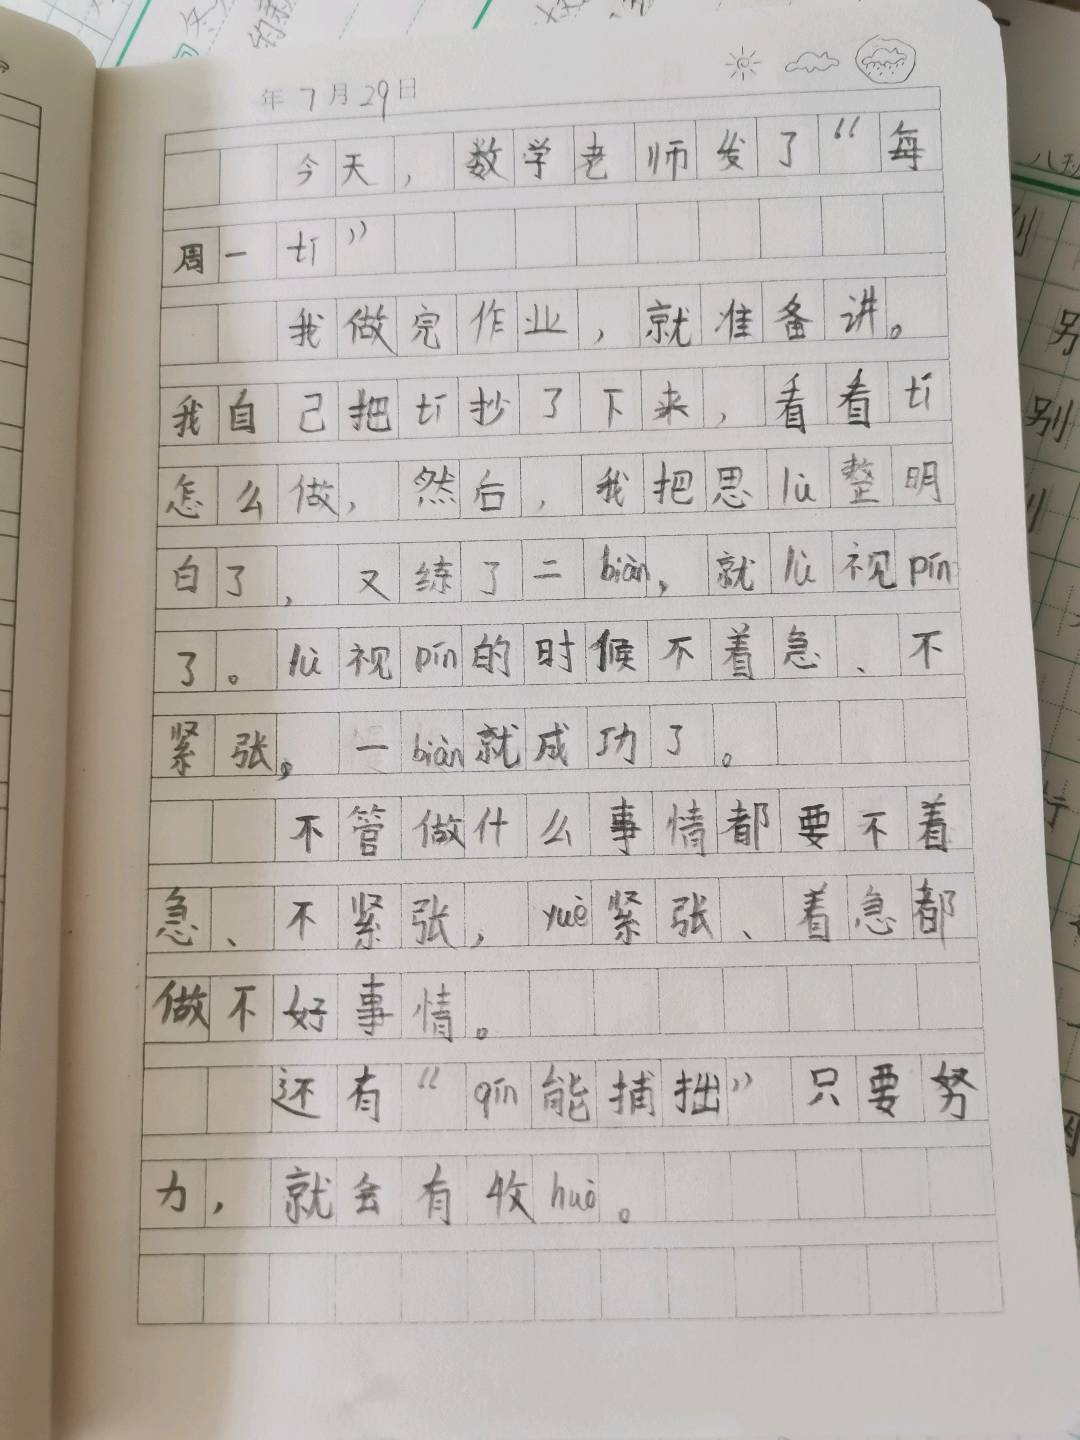 年7月29日
今天，数学老师发了“每
周一tí”
我做完作业，就准备讲。
我自己把tí抄了下来，看看tí
怎么做，然后，我把思lù整明
白了，又练了二biàn，就lù视pín
了。lù视pín的时候不着急、不
紧张，一biàn就成功了。
不管做什么事情都要不着
急、不紧张，yuè紧张、着急都
做不好事情。
还有“qín能捕拙”只要努
力，就会有收huò。